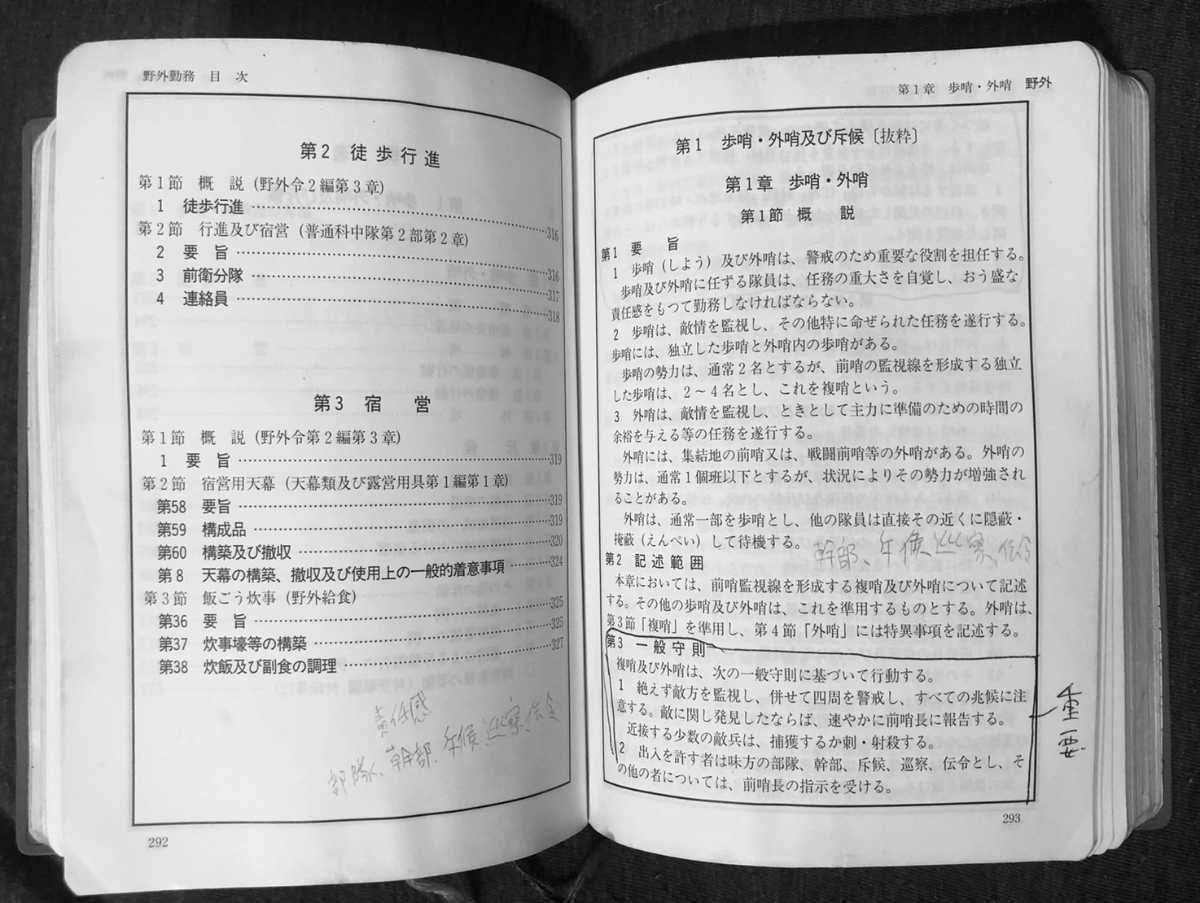 野外勤務 目 次
第2 徒歩行進
第1節 概 説 (野外令2編第3章)
1 徒歩行進 ……………316
第2節 行進及び宿営 (普通科中隊第2部第2章)
2 要 旨 ……………316
3 前衛分隊 ……………317
4 連絡員 ……………318
第3 宿 営
第1節 概 説 (野外令第2編第3章)
1 要 旨 ……………319
第2節 宿営用天幕 (天幕類及び露営用具第1編第1章)
第58 要旨 ……………319
第59 構成品 ……………319
第60 構築及び撤収 ……………320
第8 天幕の構築、撤収及び使用上の一般的着意事項 ……………324
第3節 飯ごう炊事 (野外給食)
第36 要 旨 ……………325
第37 炊事壕等の構築 ……………325
第38 炊飯及び副食の調理 ……………327
責任感
幹部、斥候 巡察 伝令
292
第1章 歩哨・外哨 野外
第1 歩哨・外哨及び斥候〔抜粋〕
第1章 歩哨・外哨
第1節 概 説
第1 要 旨
1 歩哨(しよう)及び外哨は、警戒のため重要な役割を担任する。
歩哨及び外哨に任ずる隊員は、任務の重大さを自覚し、おう盛な
責任感をもつて勤務しなければならない。
2 歩哨は、敵情を監視し、その他特に命ぜられた任務を遂行する。
歩哨には、独立した歩哨と外哨内の歩哨がある。
歩哨の勢力は、通常2名とするが、前哨の監視線を形成する独立
した歩哨は、2〜4名とし、これを複哨という。
3 外哨は、敵情を監視し、ときとして主力に準備のための時間の
余裕を与える等の任務を遂行する。
外哨には、集結地の前哨又は、戦闘前哨等の外哨がある。外哨の
勢力は、通常1個班以下とするが、状況によりその勢力が増強され
ることがある。
外哨は、通常一部を歩哨とし、他の隊員は直接その近くに隠蔽・
掩蔽(えんぺい)して待機する。
幹部、斥候 巡察、伝令
第2 記述範囲
本章においては、前哨監視線を形成する複哨及び外哨について記述
する。その他の歩哨及び外哨は、これを準用するものとする。外哨は、
第3節「複哨」を準用し、第4節「外哨」には特異事項を記述する。
第3 一般守則
複哨及び外哨は、次の一般守則に基づいて行動する。
1 絶えず敵方を監視し、併せて四周を警戒し、すべての兆候に注
意する。敵に関し発見したならば、速やかに前哨長に報告する。
近接する少数の敵兵は、捕獲するか刺・射殺する。
2 出入を許す者は味方の部隊、幹部、斥候、巡察、伝令とし、そ
の他の者については、前哨長の指示を受ける。
重要
293